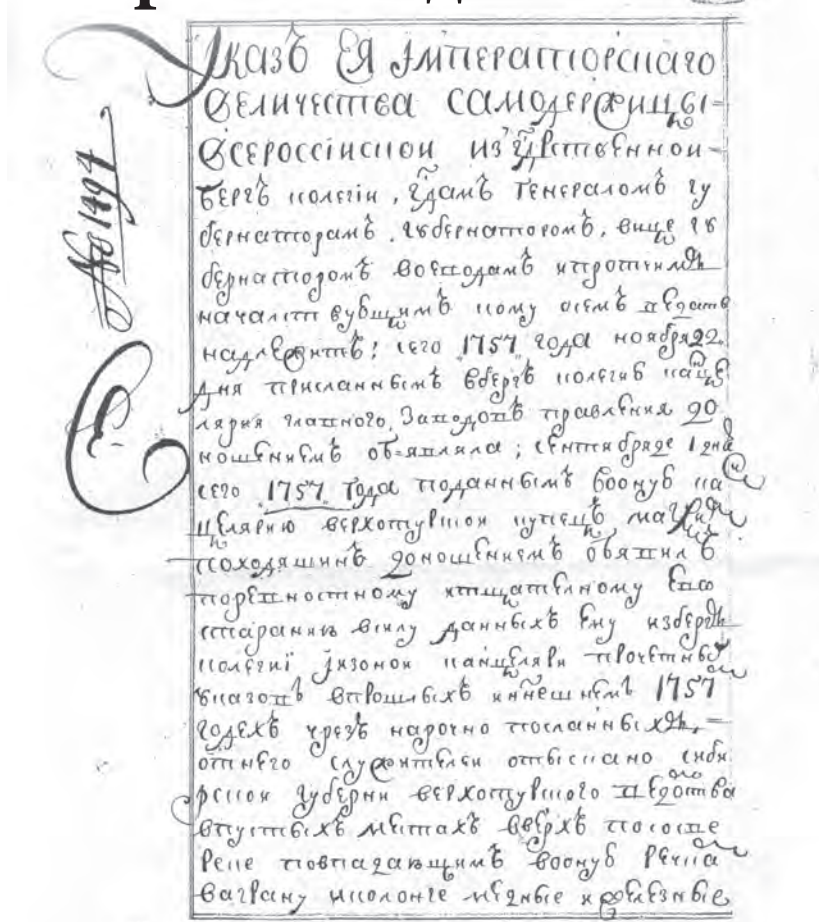 № 1494
Указъ ЕЯ Императорскаго
величества самодержицы
всероссiискои из гдрственнои
бергъ колегiи, гдамъ генераломъ гу
бернаторамъ, губернаторомъ, вице гу
бернаторомъ воеводамъ ипротчимъ
началствующимъ кому осемъ ведать
надлежитъ: сего 1757 года ноября 22
дня присланнымъ вбергъ колегию канце
лярия главного Заводовъ правления до
ношениемъ объявляла; сентября 1 дня
сего 1757 года поданнымъ вооную кан
целярию верхотурскои купецъ
Походяшинъ доношениемъ объявилъ
поревностному итщателному Ево
старанию всилу данныхъ Ему избергъ
колегиi канцеляри
указовъ впрошлыхъ иннешнемъ 1757
годехъ чрезъ нарочно посланныхъ
отнего служителеи отыскано сиби
рскои губерни верхотурского ведомства
впустыхъ местахъ вверхъ пососве
реке повпадающимъ вооную речка
ваграну иколонге медные ижелезные